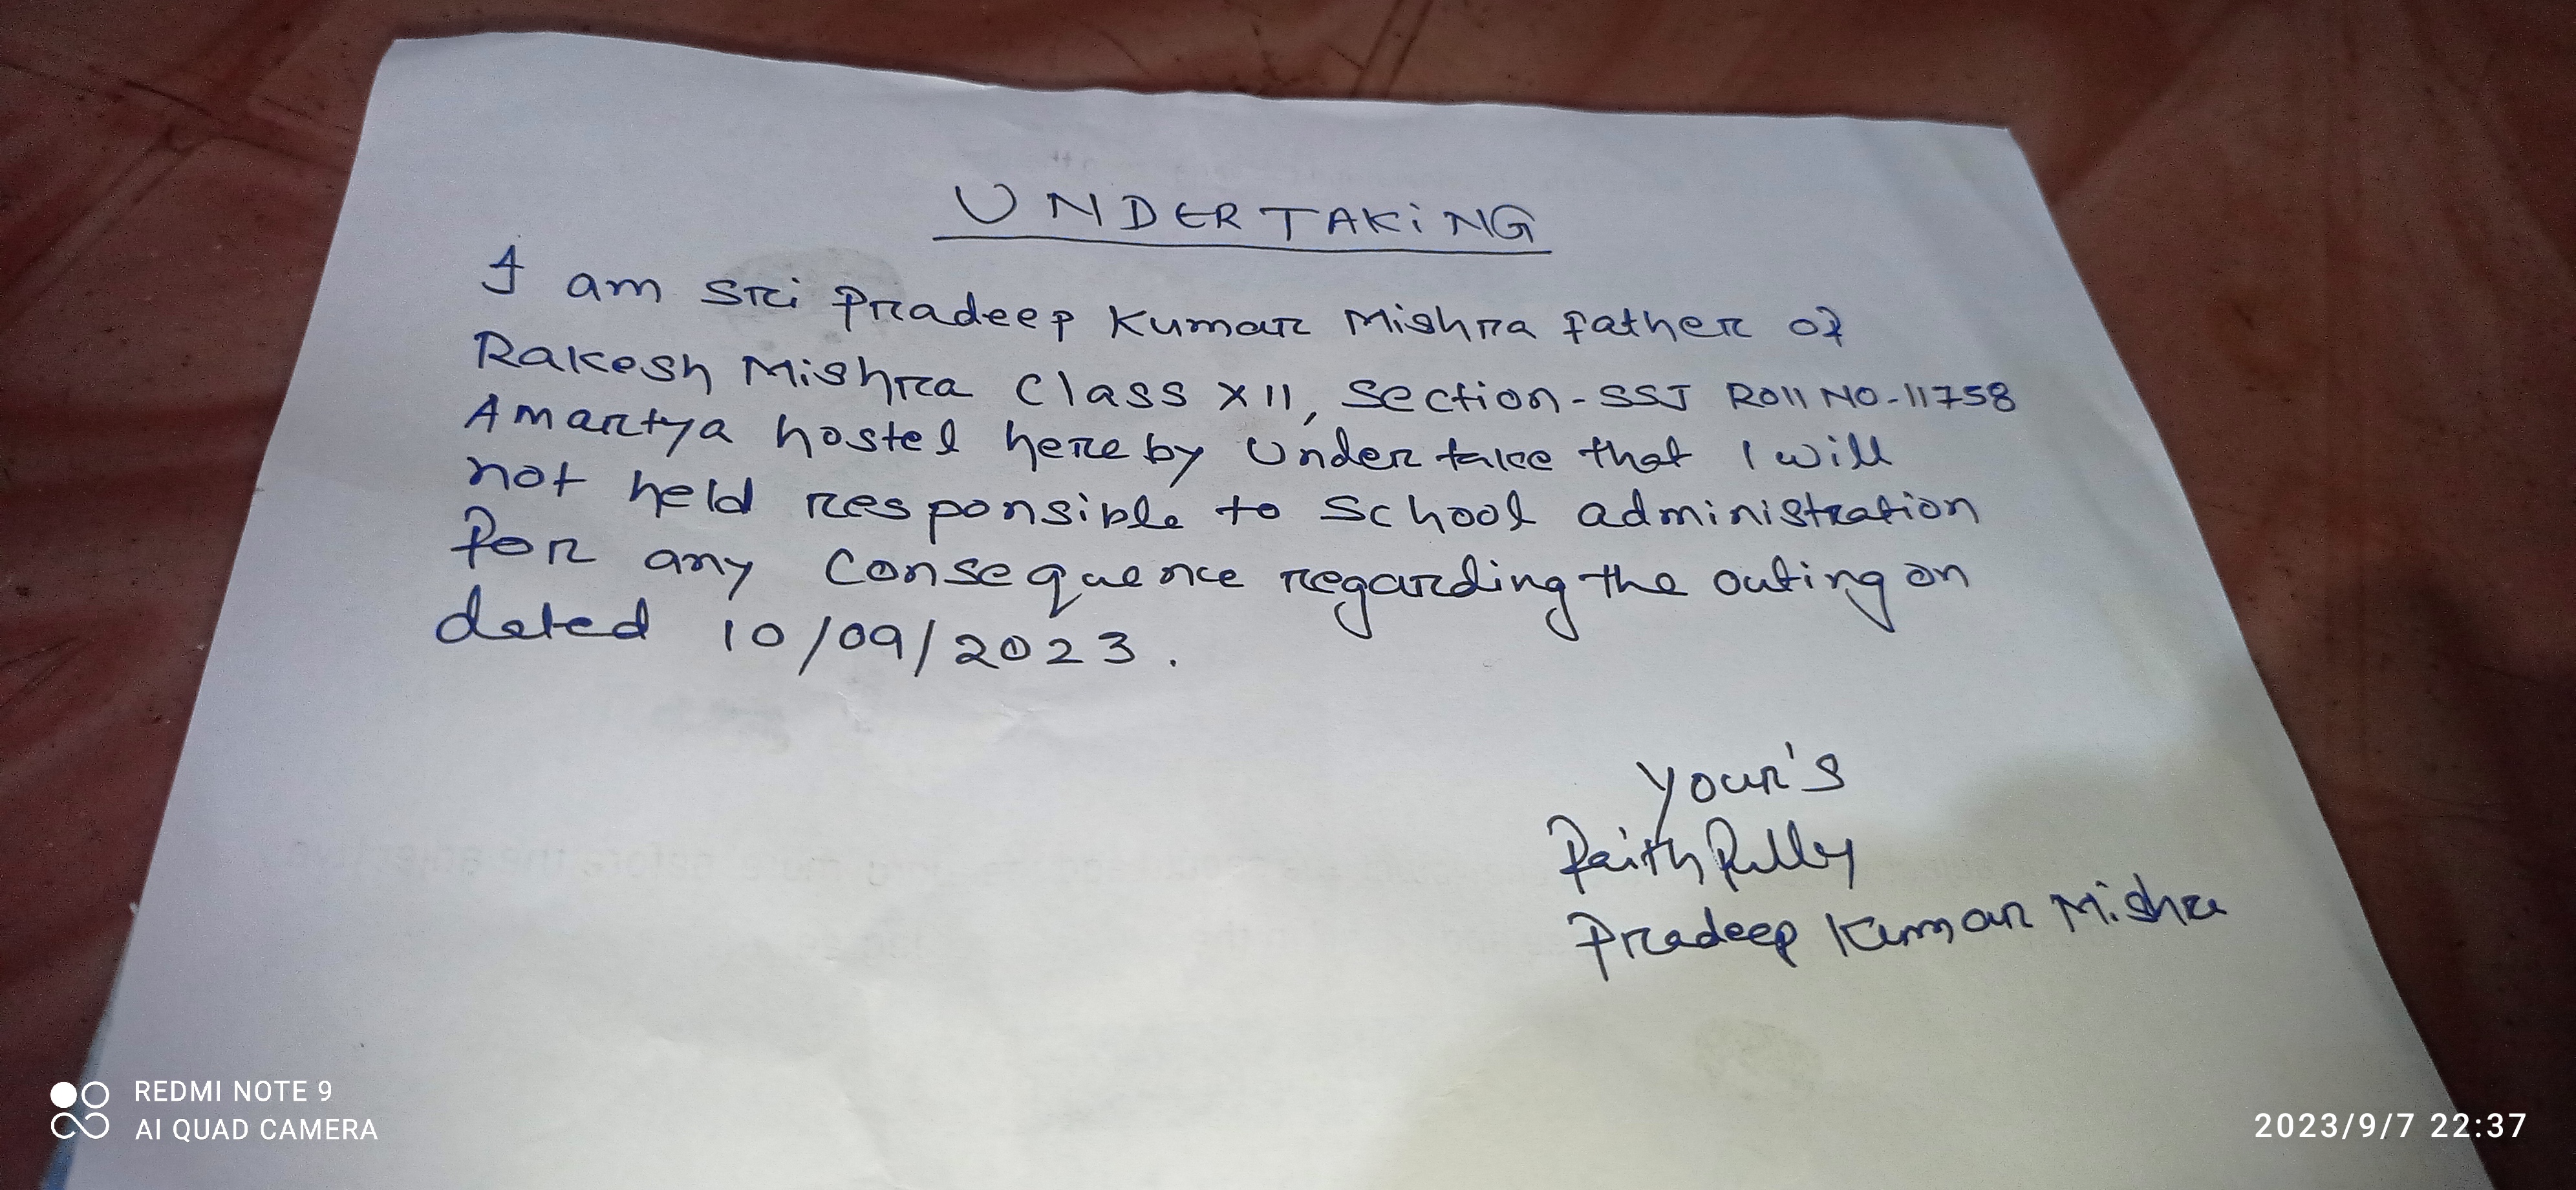 UNDERTAKING
I am Sri Pradeep Kumar Mishra father of
Rakesh Mishra Class XII, Section-SSJ Roll NO-11758
Amartya hostel here by Undertake that I will
not held responsible to School administration
for any Consequence regarding the outing on
dated 10/09/2023.
your's
faithfully
Pradeep Kumar Mishra
REDMI NOTE 9
AI QUAD CAMERA
2023/9/7 22:37